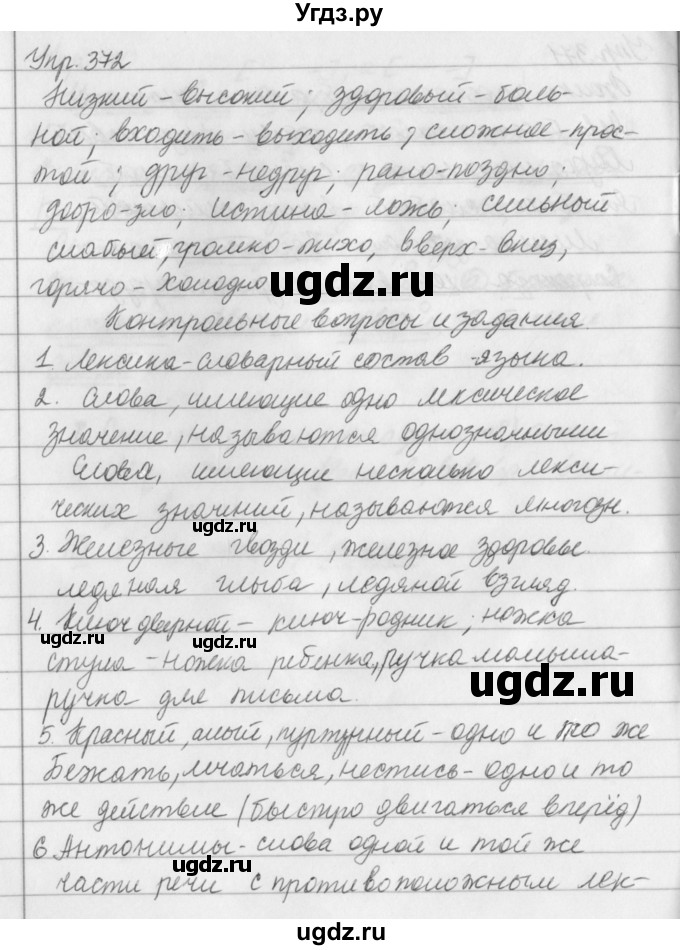 Угдз.ру
Упр. 372
Низкий - высокий; здоровый - боль-
ной; входить - выходить; сложное - прос-
той; друг - недруг; рано - поздно;
добро - зло; истина - ложь; сильный
слабый, громко - тихо, вверх - вниз,
горячо - холодно
ugdz.ru
Контрольные вопросы и задания.
1. Лексика - словарный состав языка.
ugdz.ru
2. Слова, имеющие одно лексическое
значение, называются однозначными
ugdz.ru
Слова, имеющие несколько лекси-
ческих значений, называются многозн.
ugdz.ru
3. Железные гвозди, железное здоровье.
ледяная глыба, ледяной взгляд.
4. Ключ дверной - ключ-родник; ножка
ugdz.ru
стула - ножка ребенка, ручка малыша-
ugdz.ru
ручка для письма.
5. Красный, алый, пурпурный - одно и то же
ugdz.ru
Бежать, мчаться, нестись - одно и то
же действие (быстро двигаться вперёд)
6. Антонимы - слова одной и той же
ugdz.ru
части речи с противоположным лек-
ugdz.ru